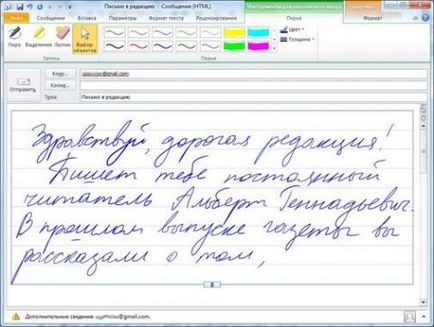 Письмо в редакцию - Сообщение (HTML)
Файл Сообщение Вставка Параметры Формат текста Рецензирование Перья Формат
Перо Выделение Ластик Выбор объектов Цвет Толщина
Запись Перья Формат
Отправить
Кому...
@gmail.com;
Копия...
Тема: Письмо в редакцию
Здравствуй, дорогая редакция!
Пишет тебе постоянный
читатель Альберт Геннадьевич.
В прошлом выпуске газеты вы
рассказали о том,
Дополнительные сведения: @gmail.com.